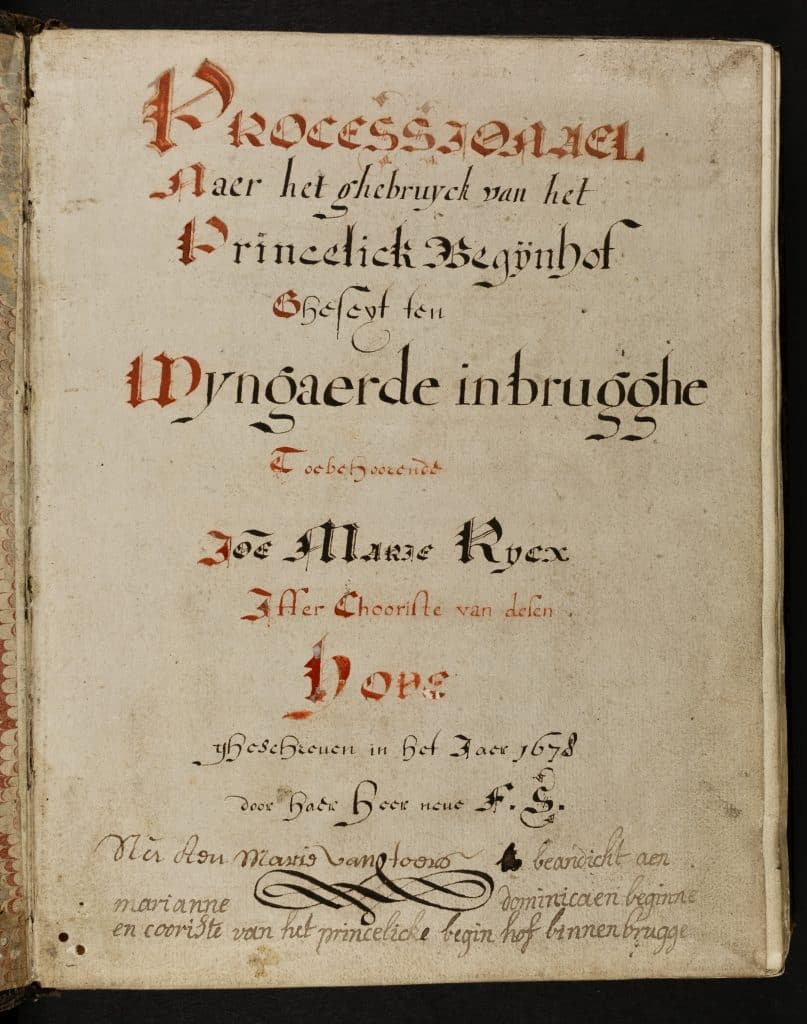 Processionael
Naer het ghebruyck van het
Princelick Begÿnhof
Gheseyt ten
Wyngaerde in brugghe
Toebehoorende
Joē Marie Rycx
Jffer Chooriste van desen
Hove
ghescreven in het Jaer 1678
door haer Heer neve F. S.
Marie van beandicht aen
marianne dominicaen beginne
en cooriste van het princelicke begin hof binnen brugge